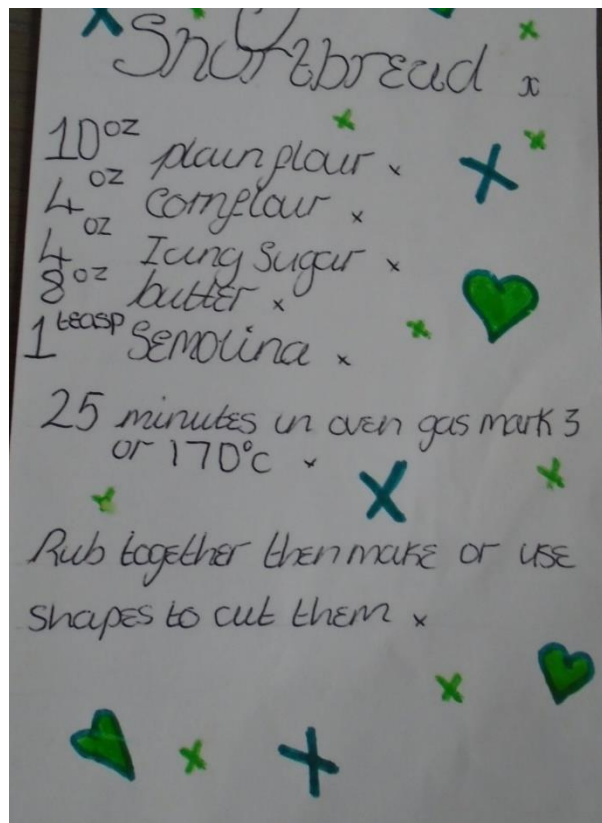 Shortbread x
10oz plain flour x
4oz cornflour x
4oz Icing Sugar x
8oz butter x
1 teasp Semolina x
25 minutes in oven gas mark 3
or 170°c x
Rub together then make or use
shapes to cut them x